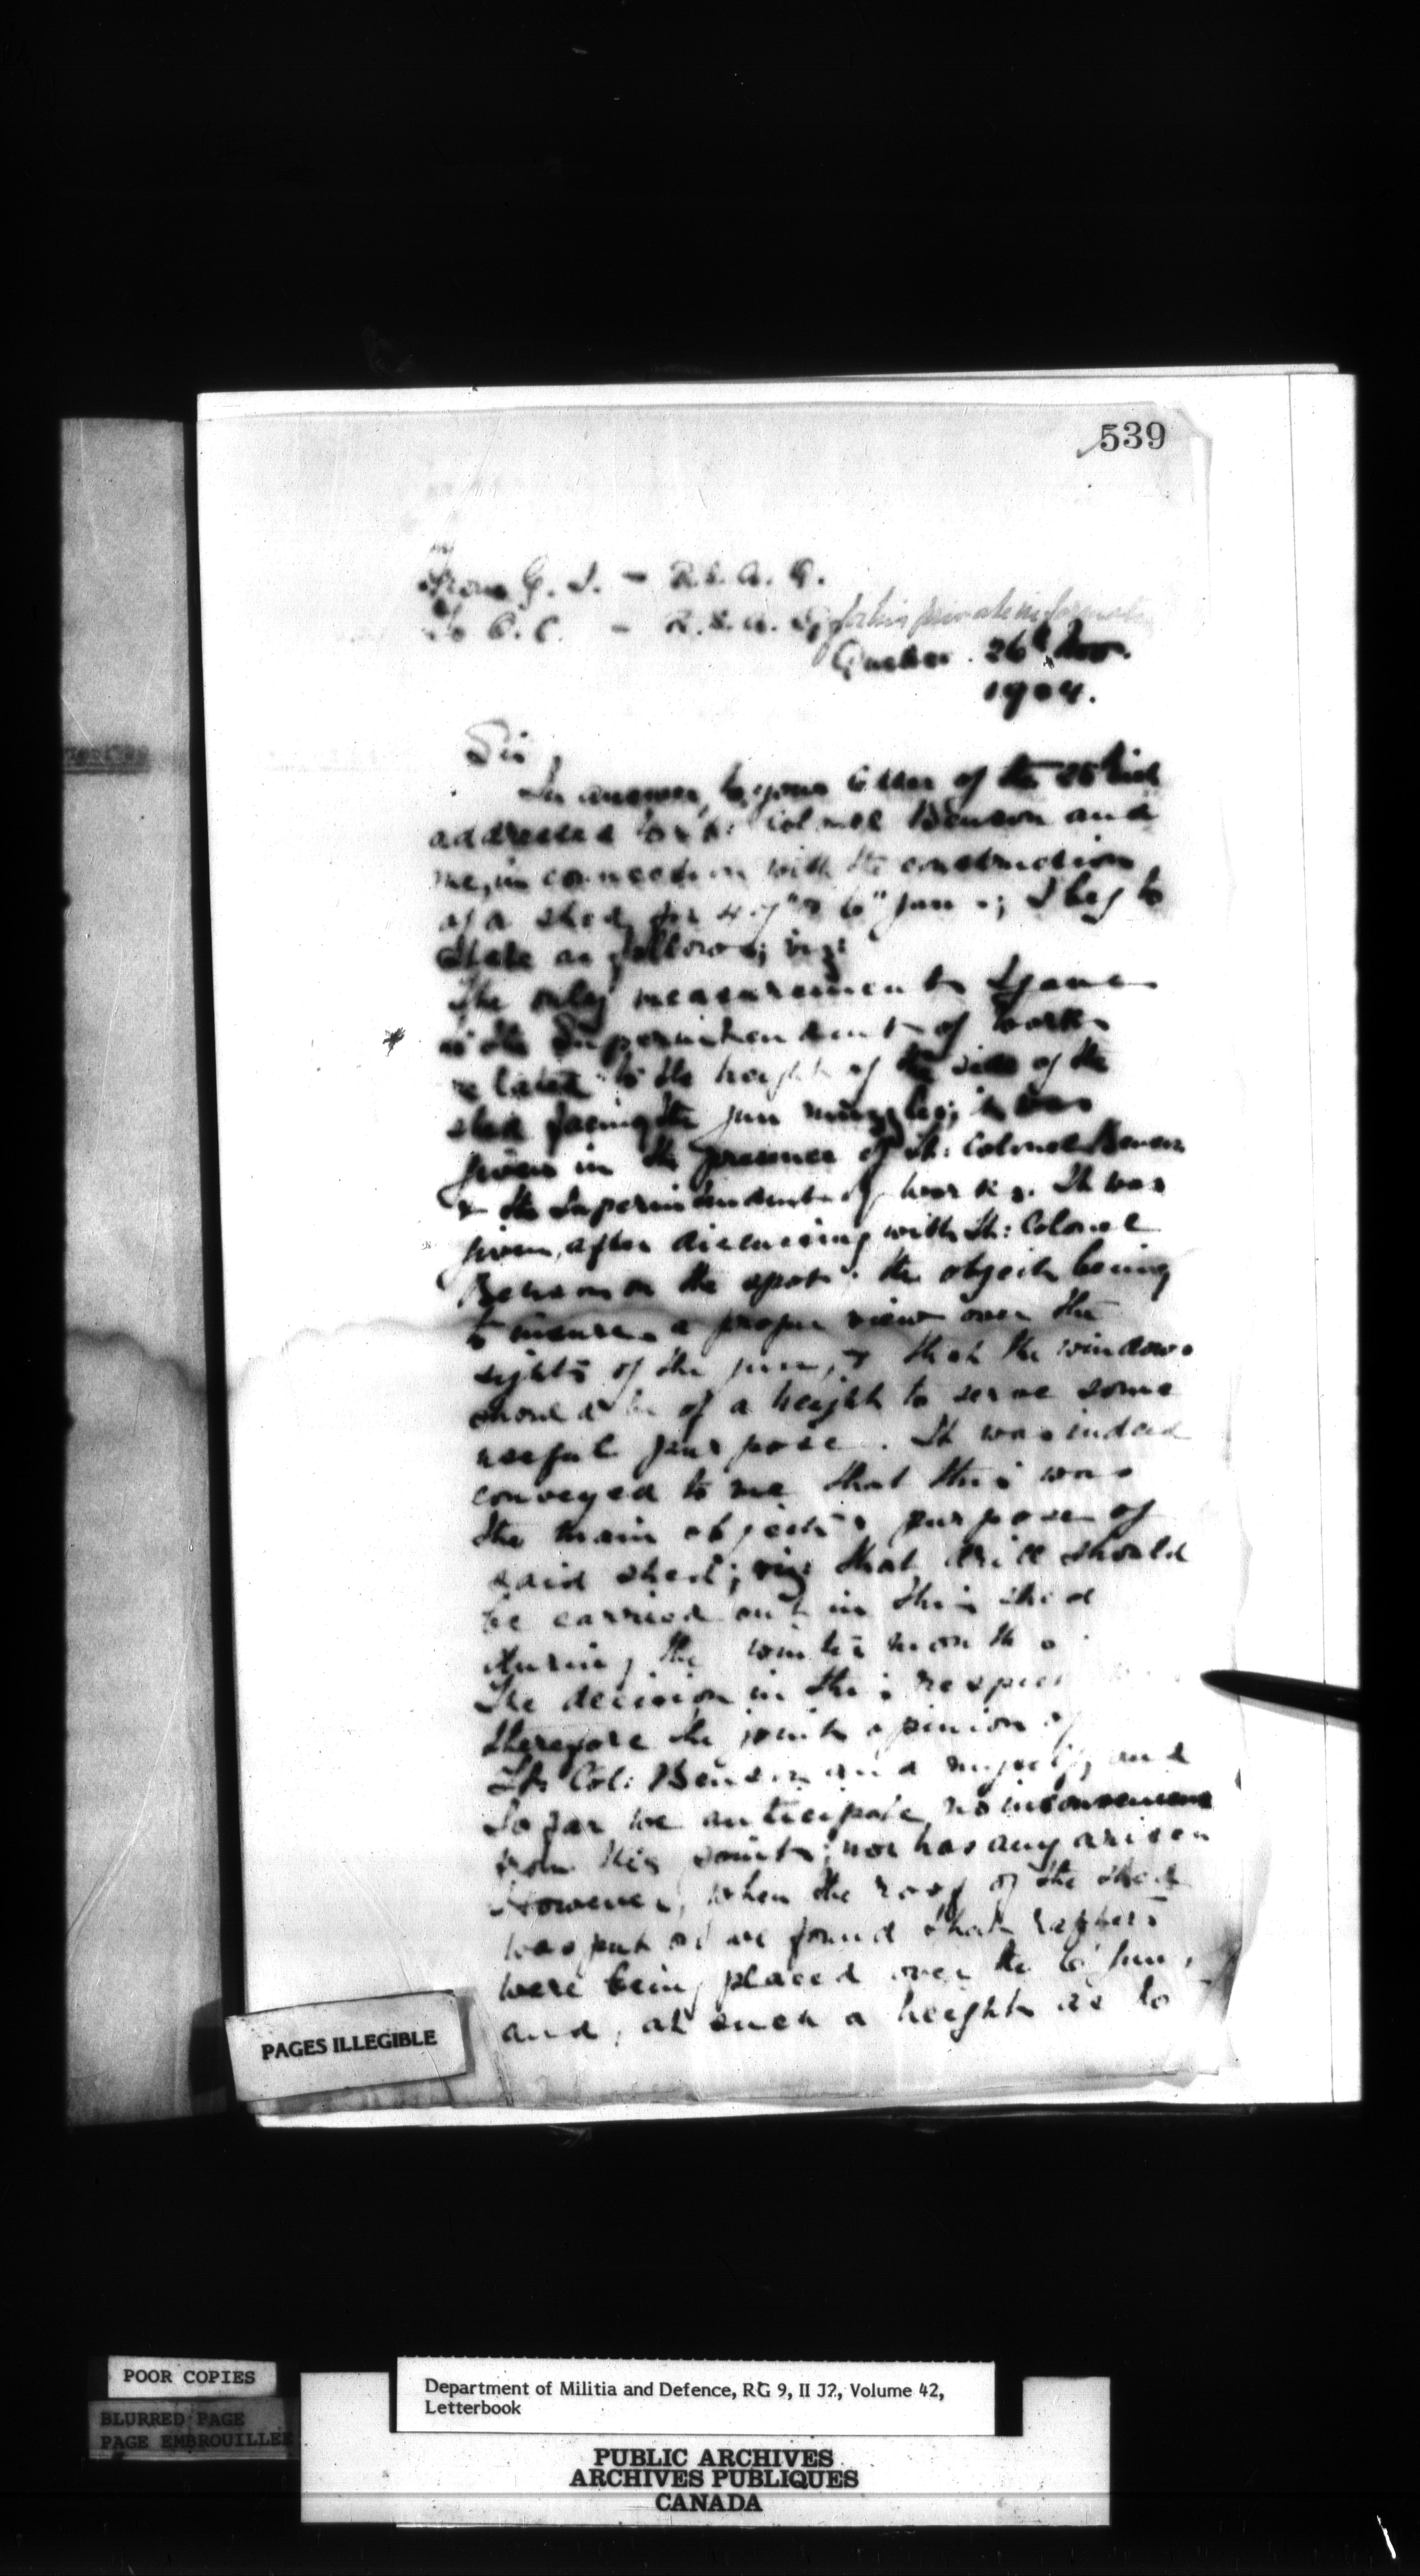 539
From G. I. - R.S.A. G.
To O.C. - R.S.A. for his private information
Quebec. 26th Nov.
1904.
Sir,
In answer, to your letter of the 25th
addressed to Lt: Colonel Benson and
me, in connection with the construction
of a shed for 4.7" & 6" guns; I beg to
state as follows; viz:
The only measurements I gave
to the Superintendent of Works
related to the height of the side of the
shed facing the gun muzzles; it was
given in the presence of Lt: Colonel Benson
& the Superintendent of works. It was
given, after discussing with Lt: Colonel
Benson on the spot: the object being
to insure a proper view over the
sights of the gun, & that the windows
should be of a height to serve some
useful purpose. It was indeed
conveyed to me that this was
the main object & purpose of
said shed; viz: that drill should
be carried out in this shed
during the winter months.
The decision in this respect
therefore the joint opinion of
Lt. Col: Benson and myself, and
so far we anticipate no inconvenience
from this point; nor has any arisen
However, when the roof of the shed
was put on we found that rafters
were being placed over the 6" gun,
and, at such a height as to
PAGES ILLEGIBLE
POOR COPIES
BLURRED PAGE
PAGE EMBROUILLEE
Department of Militia and Defence, RG 9, II J2, Volume 42,
Letterbook
PUBLIC ARCHIVES
ARCHIVES PUBLIQUES
CANADA